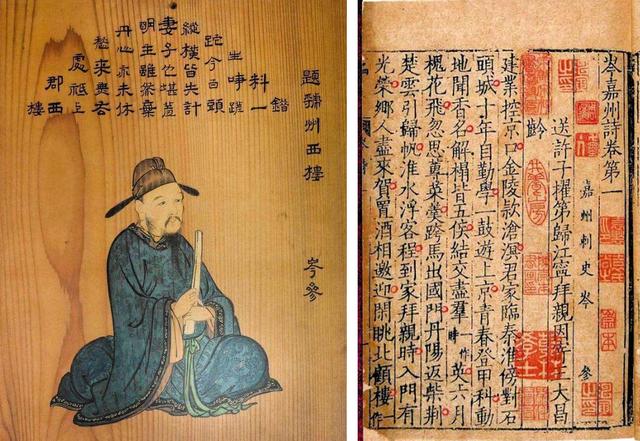 題虢州西樓 岑參
錯
料一
生事蹉
跎今白頭
縱橫皆失計
妻子也堪羞
明主雖然棄
丹心亦未休
愁來無去
處祇上
郡西
樓
岑嘉州詩卷第一
嘉州刺史岑 參
送許子擢第歸江寧拜親因寄王大昌
齡
建業控京口金陵款滄溟君家臨秦淮傍對石
頭城十年自勤學一鼓遊上京青春登甲科動
地聞香名解榻皆五侯結交盡羣作時英六月
槐花飛忽思蓴菜羹跨馬出國門丹陽返柴荊
楚雲引歸帆淮水浮客程到家拜親時入門有
光榮鄉人盡來賀置酒相邀迎閒眺北顧樓一作